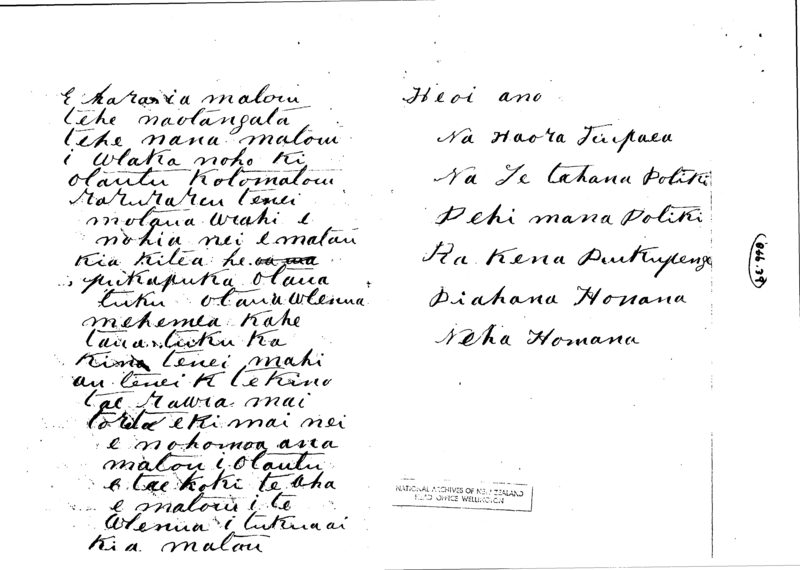 E karania matou
tehe naotangata
tehe nana matou
i Wlaka noho ki
otautu kotomatou
raruraru tenei
motaua Wahi e
nohia nei e matou
kia kitea he
pukapuka otaua
tuku otaua Wlenua
mehemea kahe
taua tuku ka
kino tenei mahi
an tenei k tekino
tae rawa mai
torita eki mai nei
e nohomoa ana
matou i Otautu
e tae koki te Aha
e matou i te
Wlenua i tukua ai
kia matou
Heoi ano
Na Haora Tupaea
Na Te tahana Potiki
Pehi mana Potiki
Ra Kena
Piahana Honana
Neha Homana
NATIONAL ARCHIVES OF NEW ZEALAND
HEAD OFFICE WELLINGTON